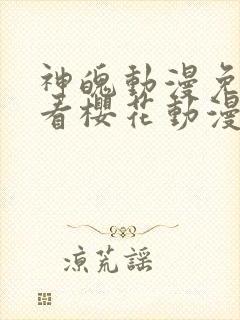 神魄動漫免
看櫻花動漫
涼荒謠